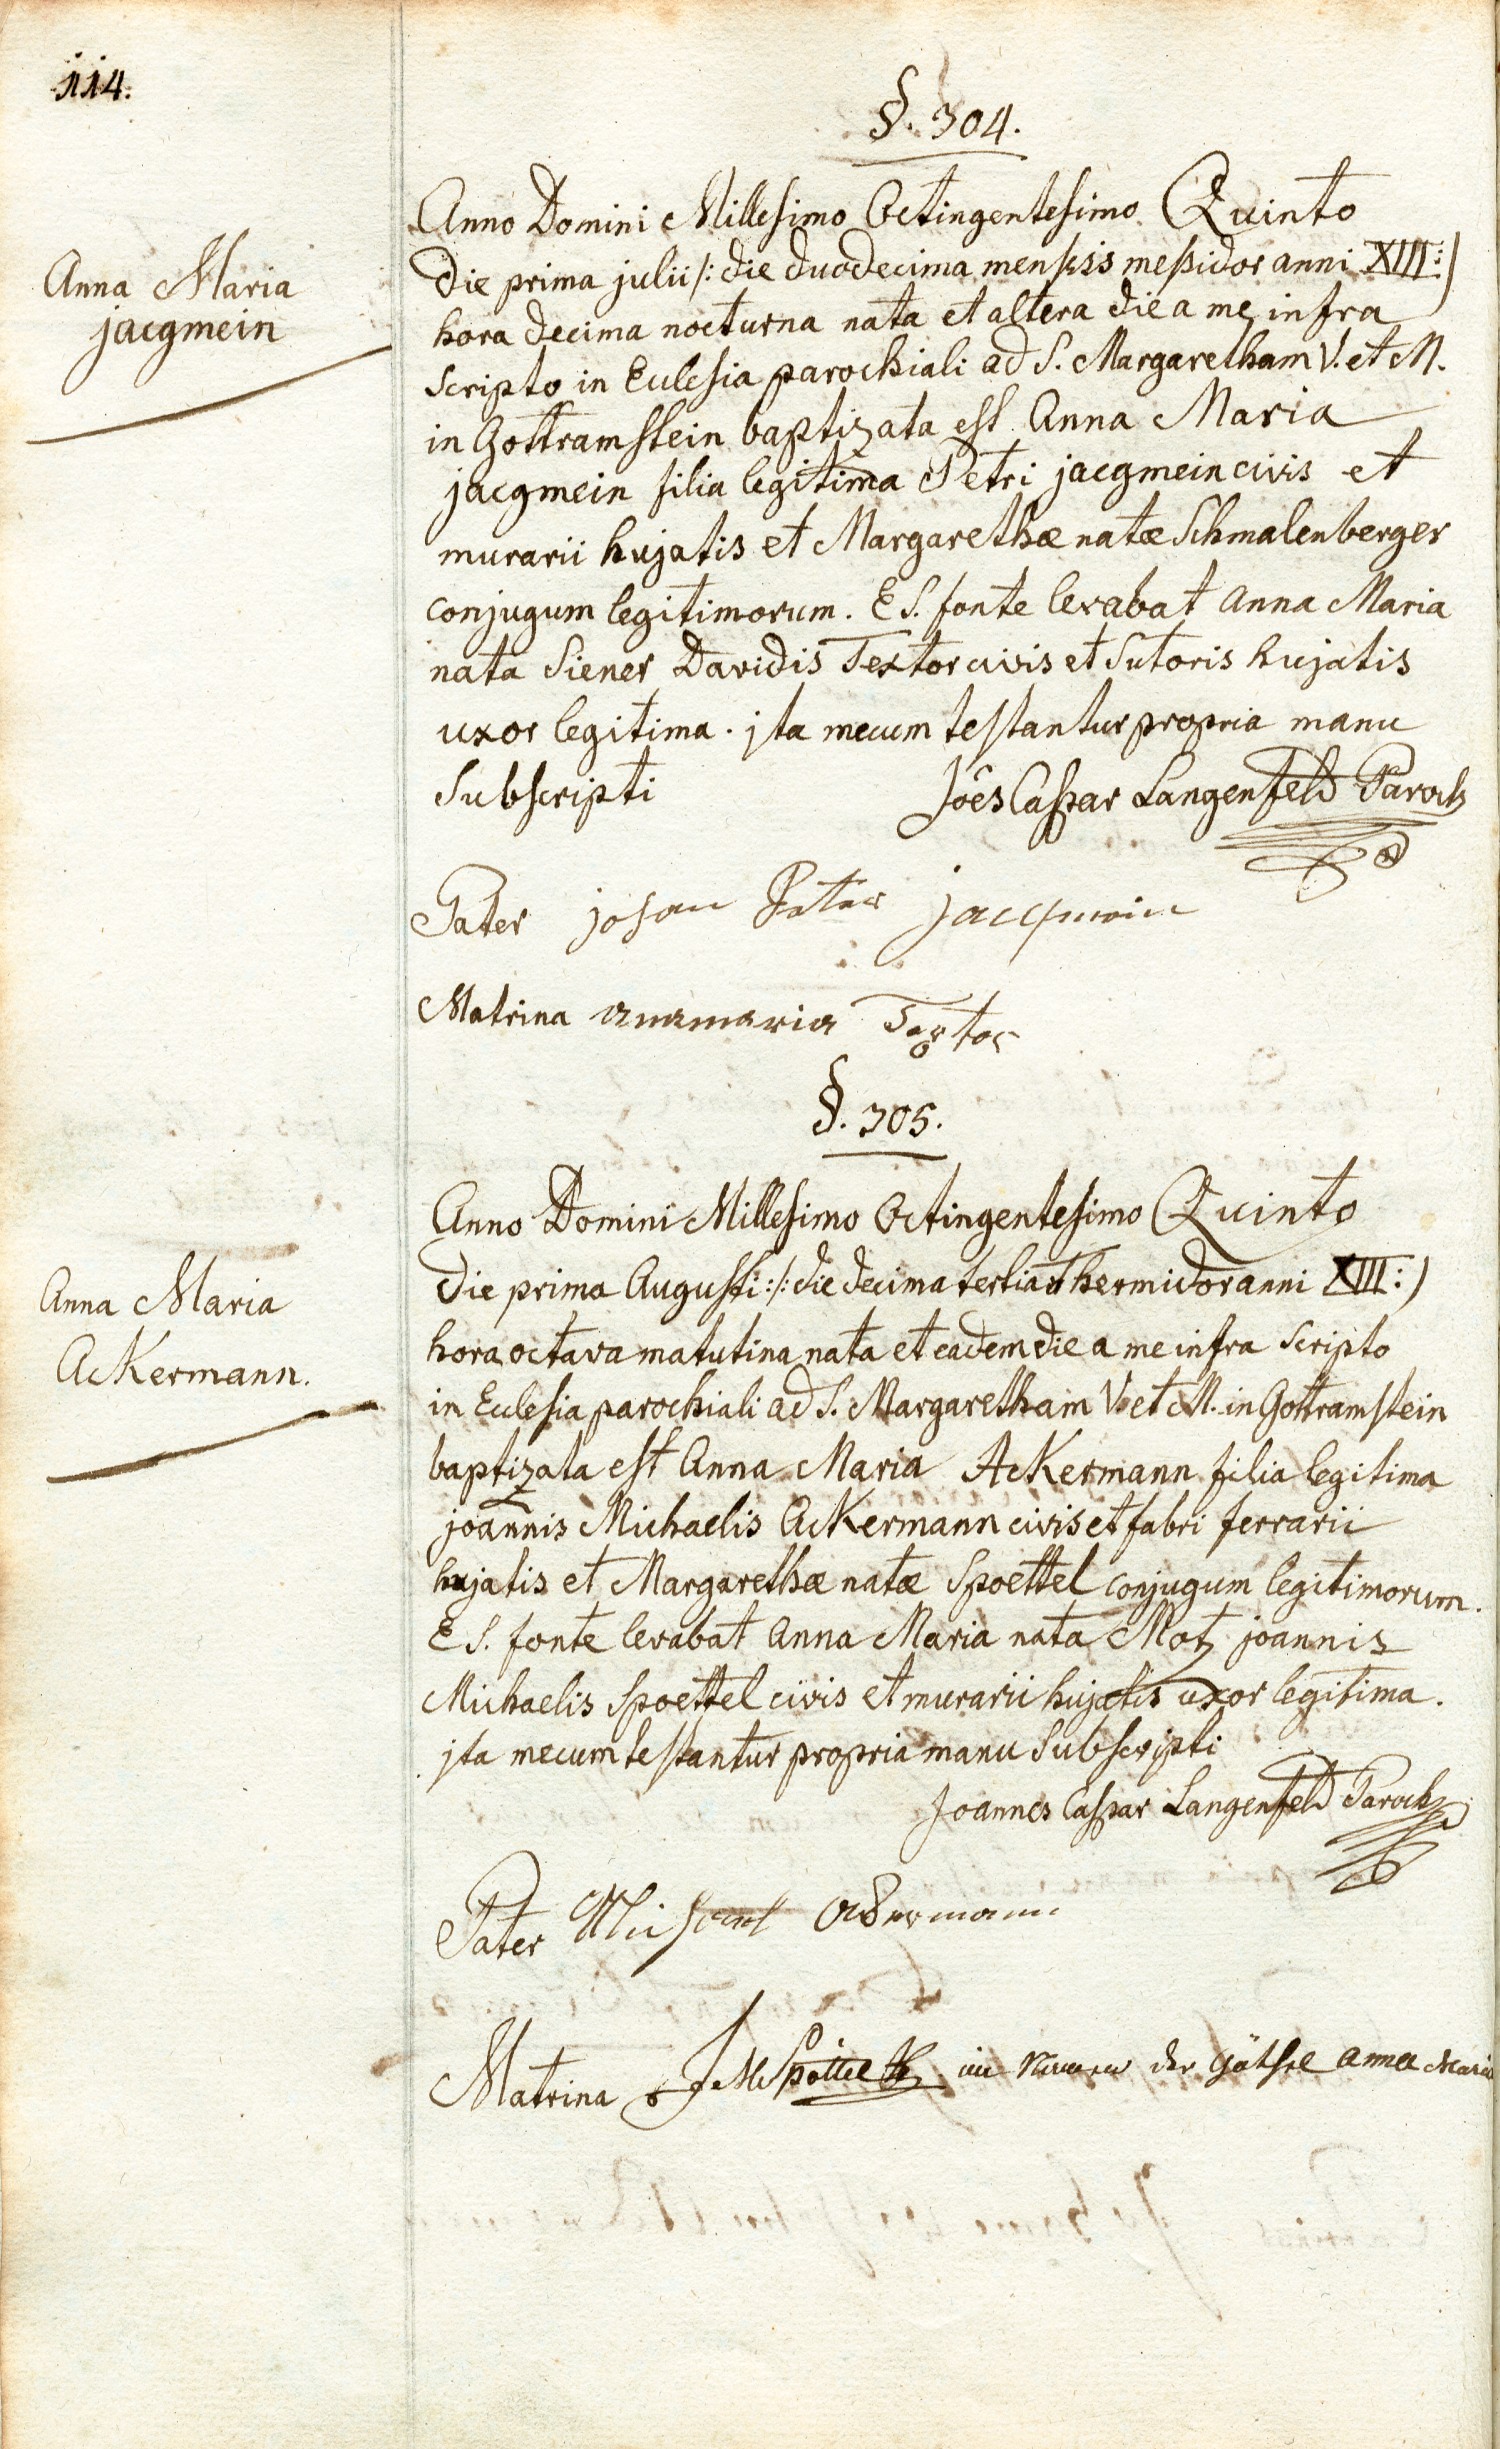 114.
§. 304.
Anna Maria
jacgmein
Anno Domini Millesimo Octingentesimo Quinto
die prima julii /: die duodecima mensis meßidor anni XIII :)
hora decima nocturna nata et altera die a me infra
scripto in Eclesia parochiali ad S. Margaretham V. et M.
in Gottramstein baptizata est Anna Maria
jacgmein filia legitima Petri jacgmein civis et
murarii hujatis et Margarethæ natæ Schmalenberger
conjugum legitimorum. E S. fonte levabat Anna Maria
nata Siener Davidis Textor civis et Sutoris hujatis
uxor legitima. jta mecum testantur propria manu
Subscripti Joês Caspar Langenfeld Paroch
Pater johan Peter jacqmein
Matrina anamaria Textor
§. 305.
Anna Maria
AcKermann.
Anno Domini Millesimo Octingentesimo Quinto
die prima Augusti :/: die decima tertia Thermidor anni XIII :)
hora octava matutina nata et eadem die a me infra scripto
in Eclesia parochiali ad S. Margaretham V. et M. in Gottramstein
baptizata est Anna Maria AcKermann filia legitima
joannis Michaelis AcKermann civis et fabri ferrarii
hujatis et Margarethæ natæ Spoettel conjugum legitimorum.
E S. fonte levabat Anna Maria nata Motz joannis
Michaelis Spoettel civis et murarii hujatis uxor legitima.
jta mecum testantur propria manu Subscripti
Joannes Caspar Langenfeld Paroch
Pater Michael ackermann
Matrina J M Spöttel im Namen der Göthel anna Maria